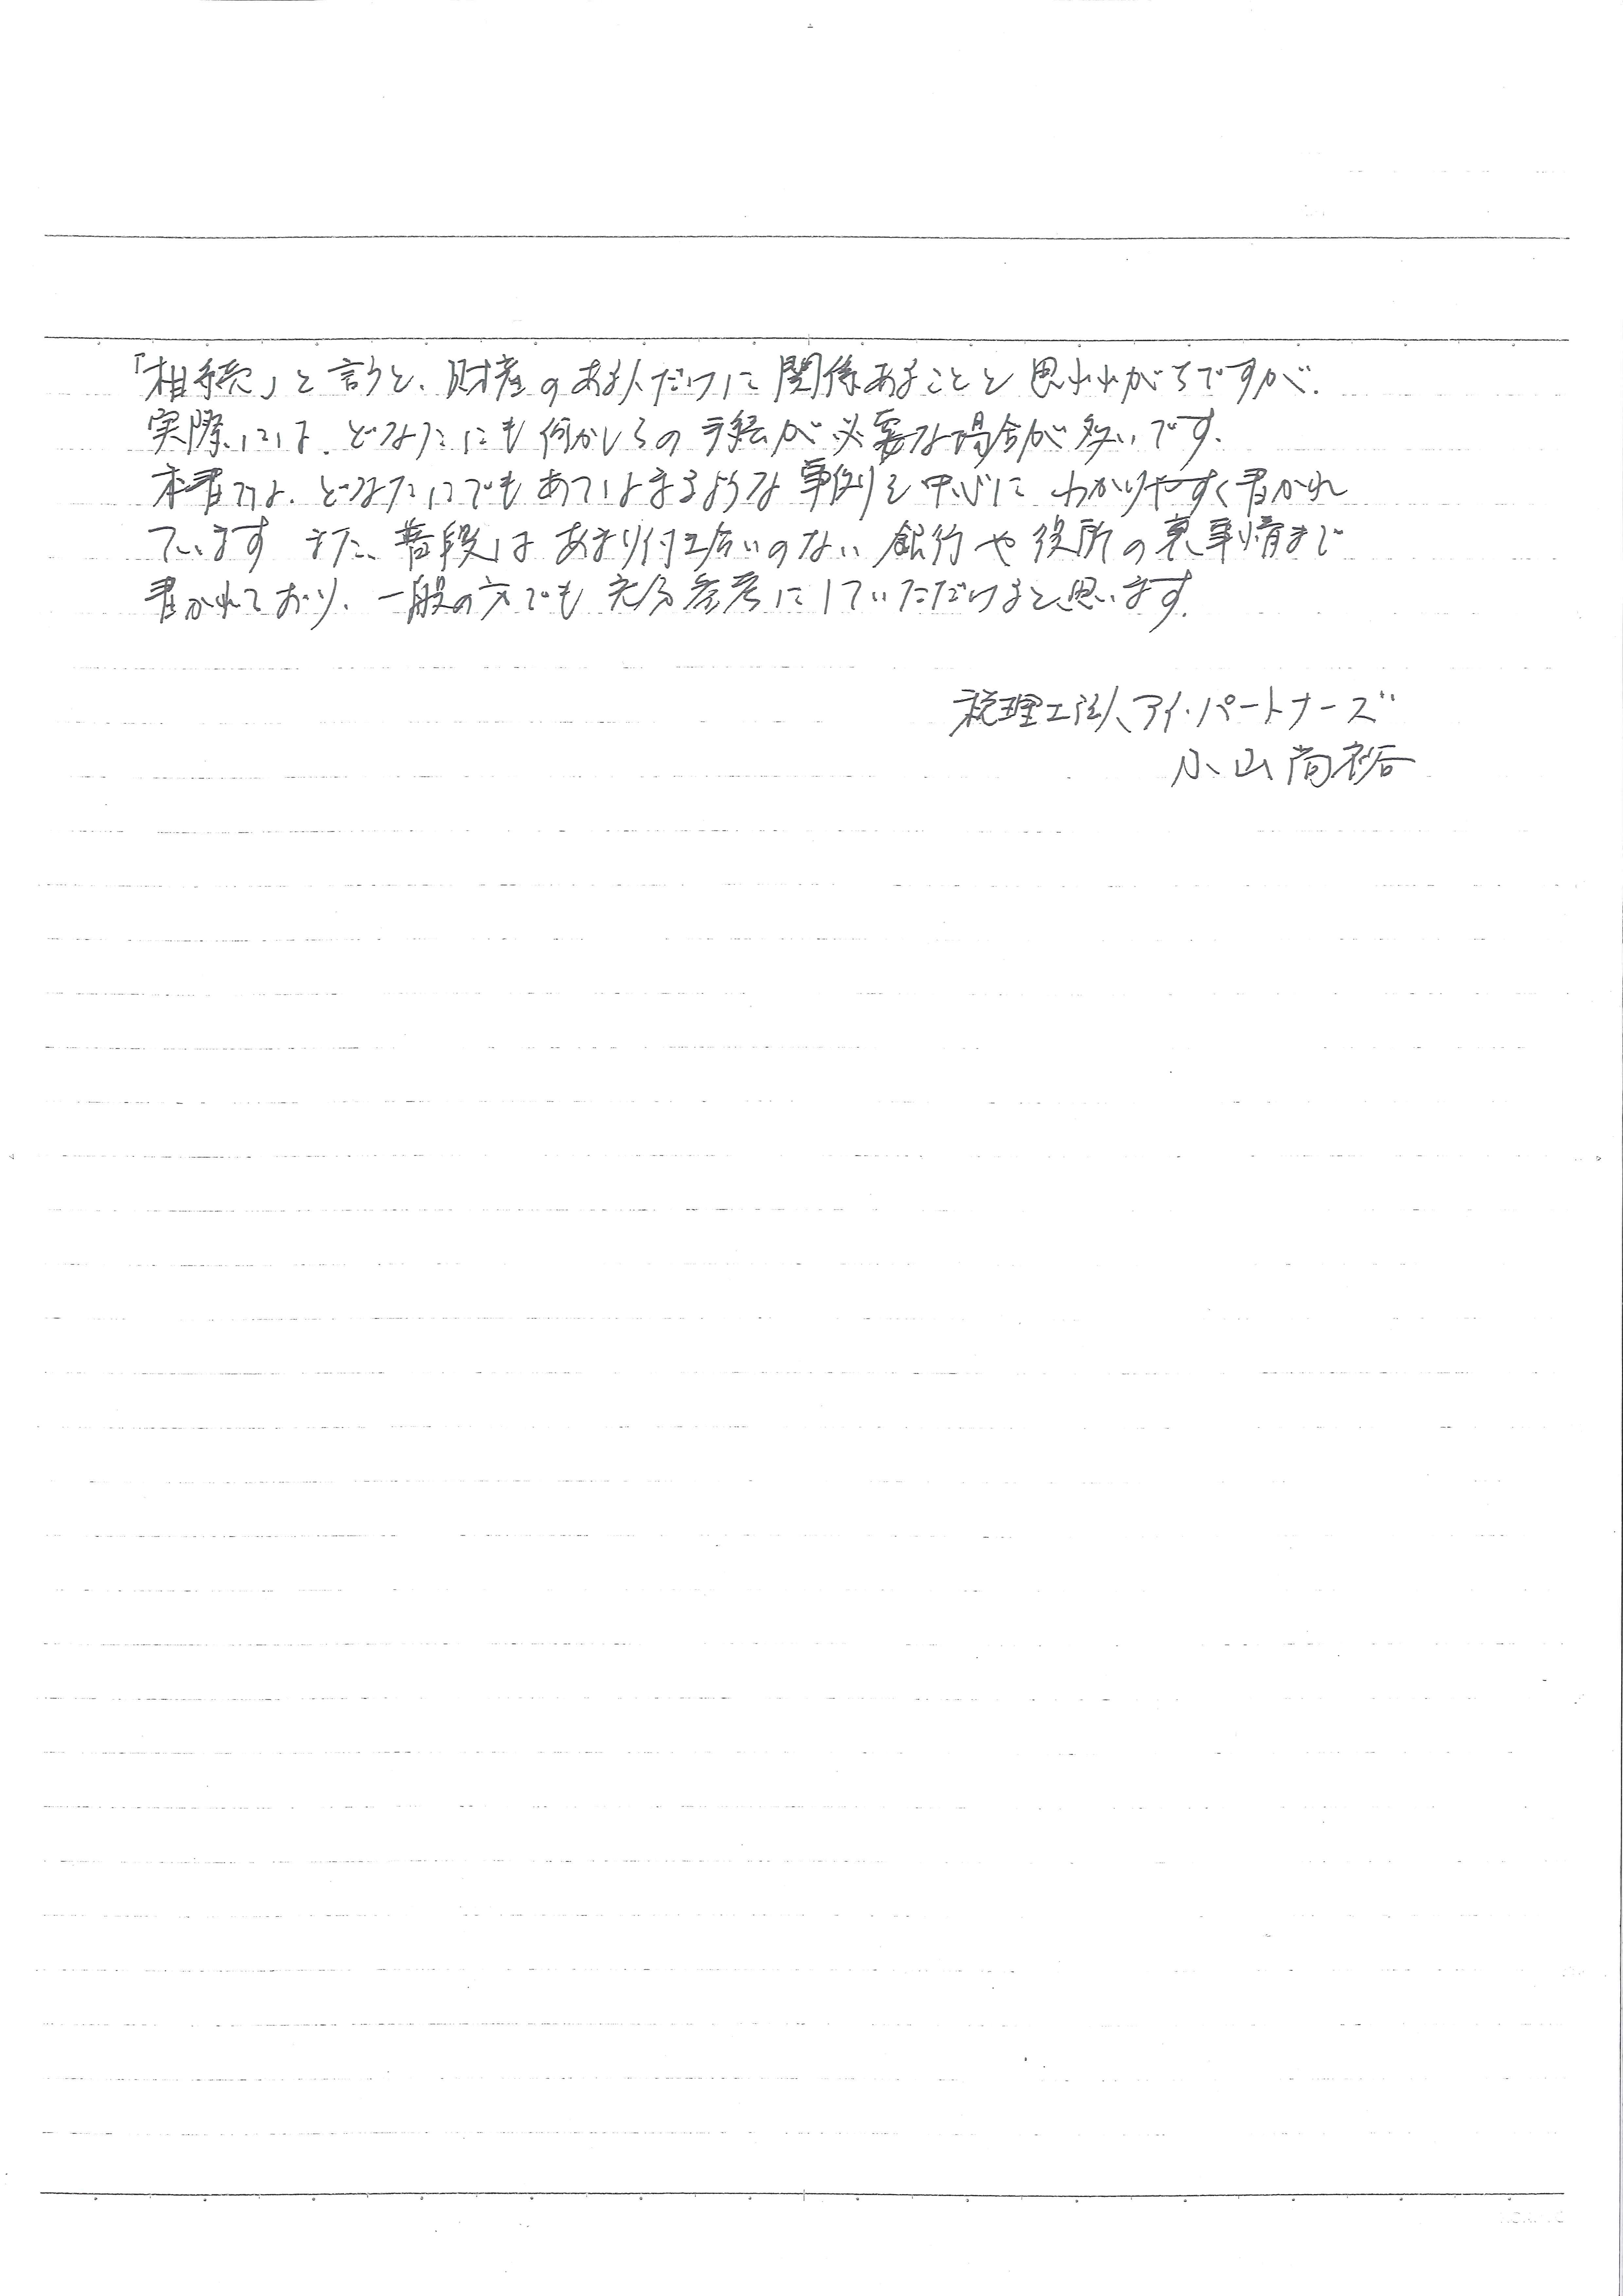 「相続」と言うと、財産のある人だけに関係あることと思われがちですが、
実際には、どなたにも何かしらの手続が必要な場合が多いです。
本書では、どなたにでもあてはまるような事例を中心にわかりやすく書かれ
ています また、普段はあまり付き合いのない銀行や役所の裏事情まで
書かれており、一般の方でも充分参考にしていただけると思います。
税理士法人アイ・パートナーズ
小山尚裕